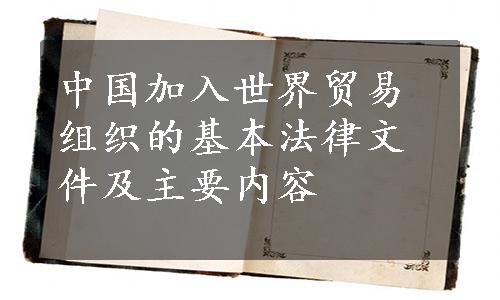 中国加入世界贸易
组织的基本法律文
件及主要内容